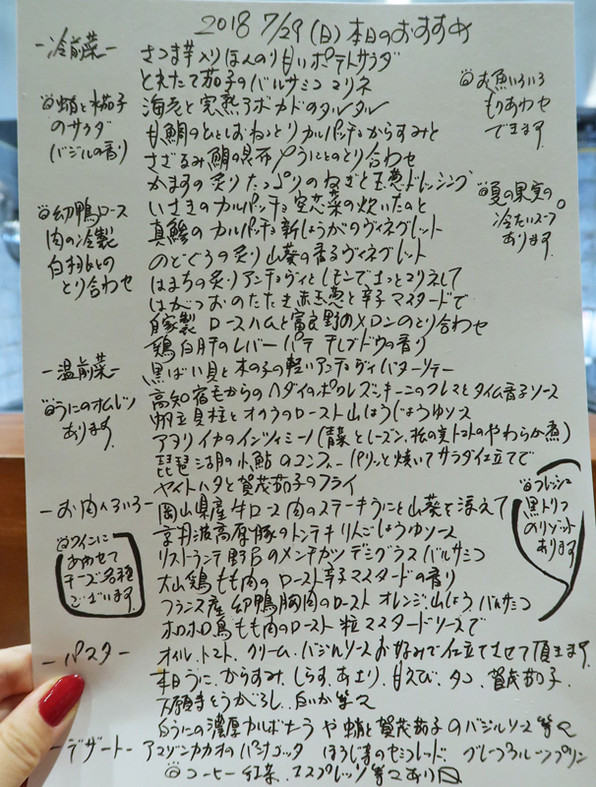 2018 7/29(日)本日のおすすめ
-冷前菜-
さつま芋入りほんのり甘いポテトサラダ
とれたて茄子のバルサミコマリネ
海老と完熟アボカドのタルタル
甘鯛のカルパッチョからすみと
鯛の昆布〆うにとのとり合わせ
かますの炙りたっぷりのねぎと玉葱ドレッシング
いさきのカルパッチョ空芯菜の炊いたのと
真鯵のカルパッチョ新しょうがのヴィネグレット
のどぐろの炙り山葵の香るヴィネグレット
はまちの炙りアンチョヴィとレモンでさっとマリネして
はがつおのたたき赤玉葱と辛子マスタードで
自家製ロースハムと富良野のメロンのとり合わせ
鶏白肝のレバーパテ干しブドウの香り
蛸と水茄子
のサラダ
バジルの香り
幼鴨ロース
肉の冷製
白桃との
とり合わせ
お魚いろいろ
もりあわせ
できます
夏の果実の
冷たいスープ
あります
-温前菜-
黒ばい貝と木の子の軽いアンチョヴィバターソテー
高知宿毛からのハダイのポワレズッキーニのクレマとタイム香るソース
帆立貝柱とオクラのロースト山椒じょうゆソース
アオリイカのインツィミーノ(青菜とレーズン、松の実トマトのやわらか煮)
琵琶湖の小鮎のコンフィーパリッと焼いてサラダ仕立てで
ヤイトハタと賀茂茄子のフライ
うにのオムレツ
あります
-お肉いろいろ-
岡山県産牛ロース肉のステーキうにと山葵を添えて
京丹波高原豚のトンテキりんごしょうゆソース
リストランテ野呂のメンチカツデミグラスバルサミコ
大山鶏もも肉のロースト辛子マスタードの香り
フランス産幼鴨胸肉のローストオレンジ、山しょうバルサミコ
ホロホロ鳥もも肉のロースト粒マスタードソースで
ワインに
あわせて
チーズ各種
ございます
フレッシュ
黒トリフ
のリゾット
あります
-パスタ-
オイル、トマト、クリーム、バジルソースお好みで仕立てさせて頂きます
本日うに、からすみ、しらす、あさり、甘えび、タコ、賀茂茄子、
万願寺とうがらし、白いか等々
うにの濃厚カルボナーラや蛸と賀茂茄子のバジルソース等々
-デザート-
アマゾンカカオのパンナコッタ ほうじ茶のセミフレッド グレープフルーツプリン
コーヒー紅茶、エスプレッソ等々あり〼